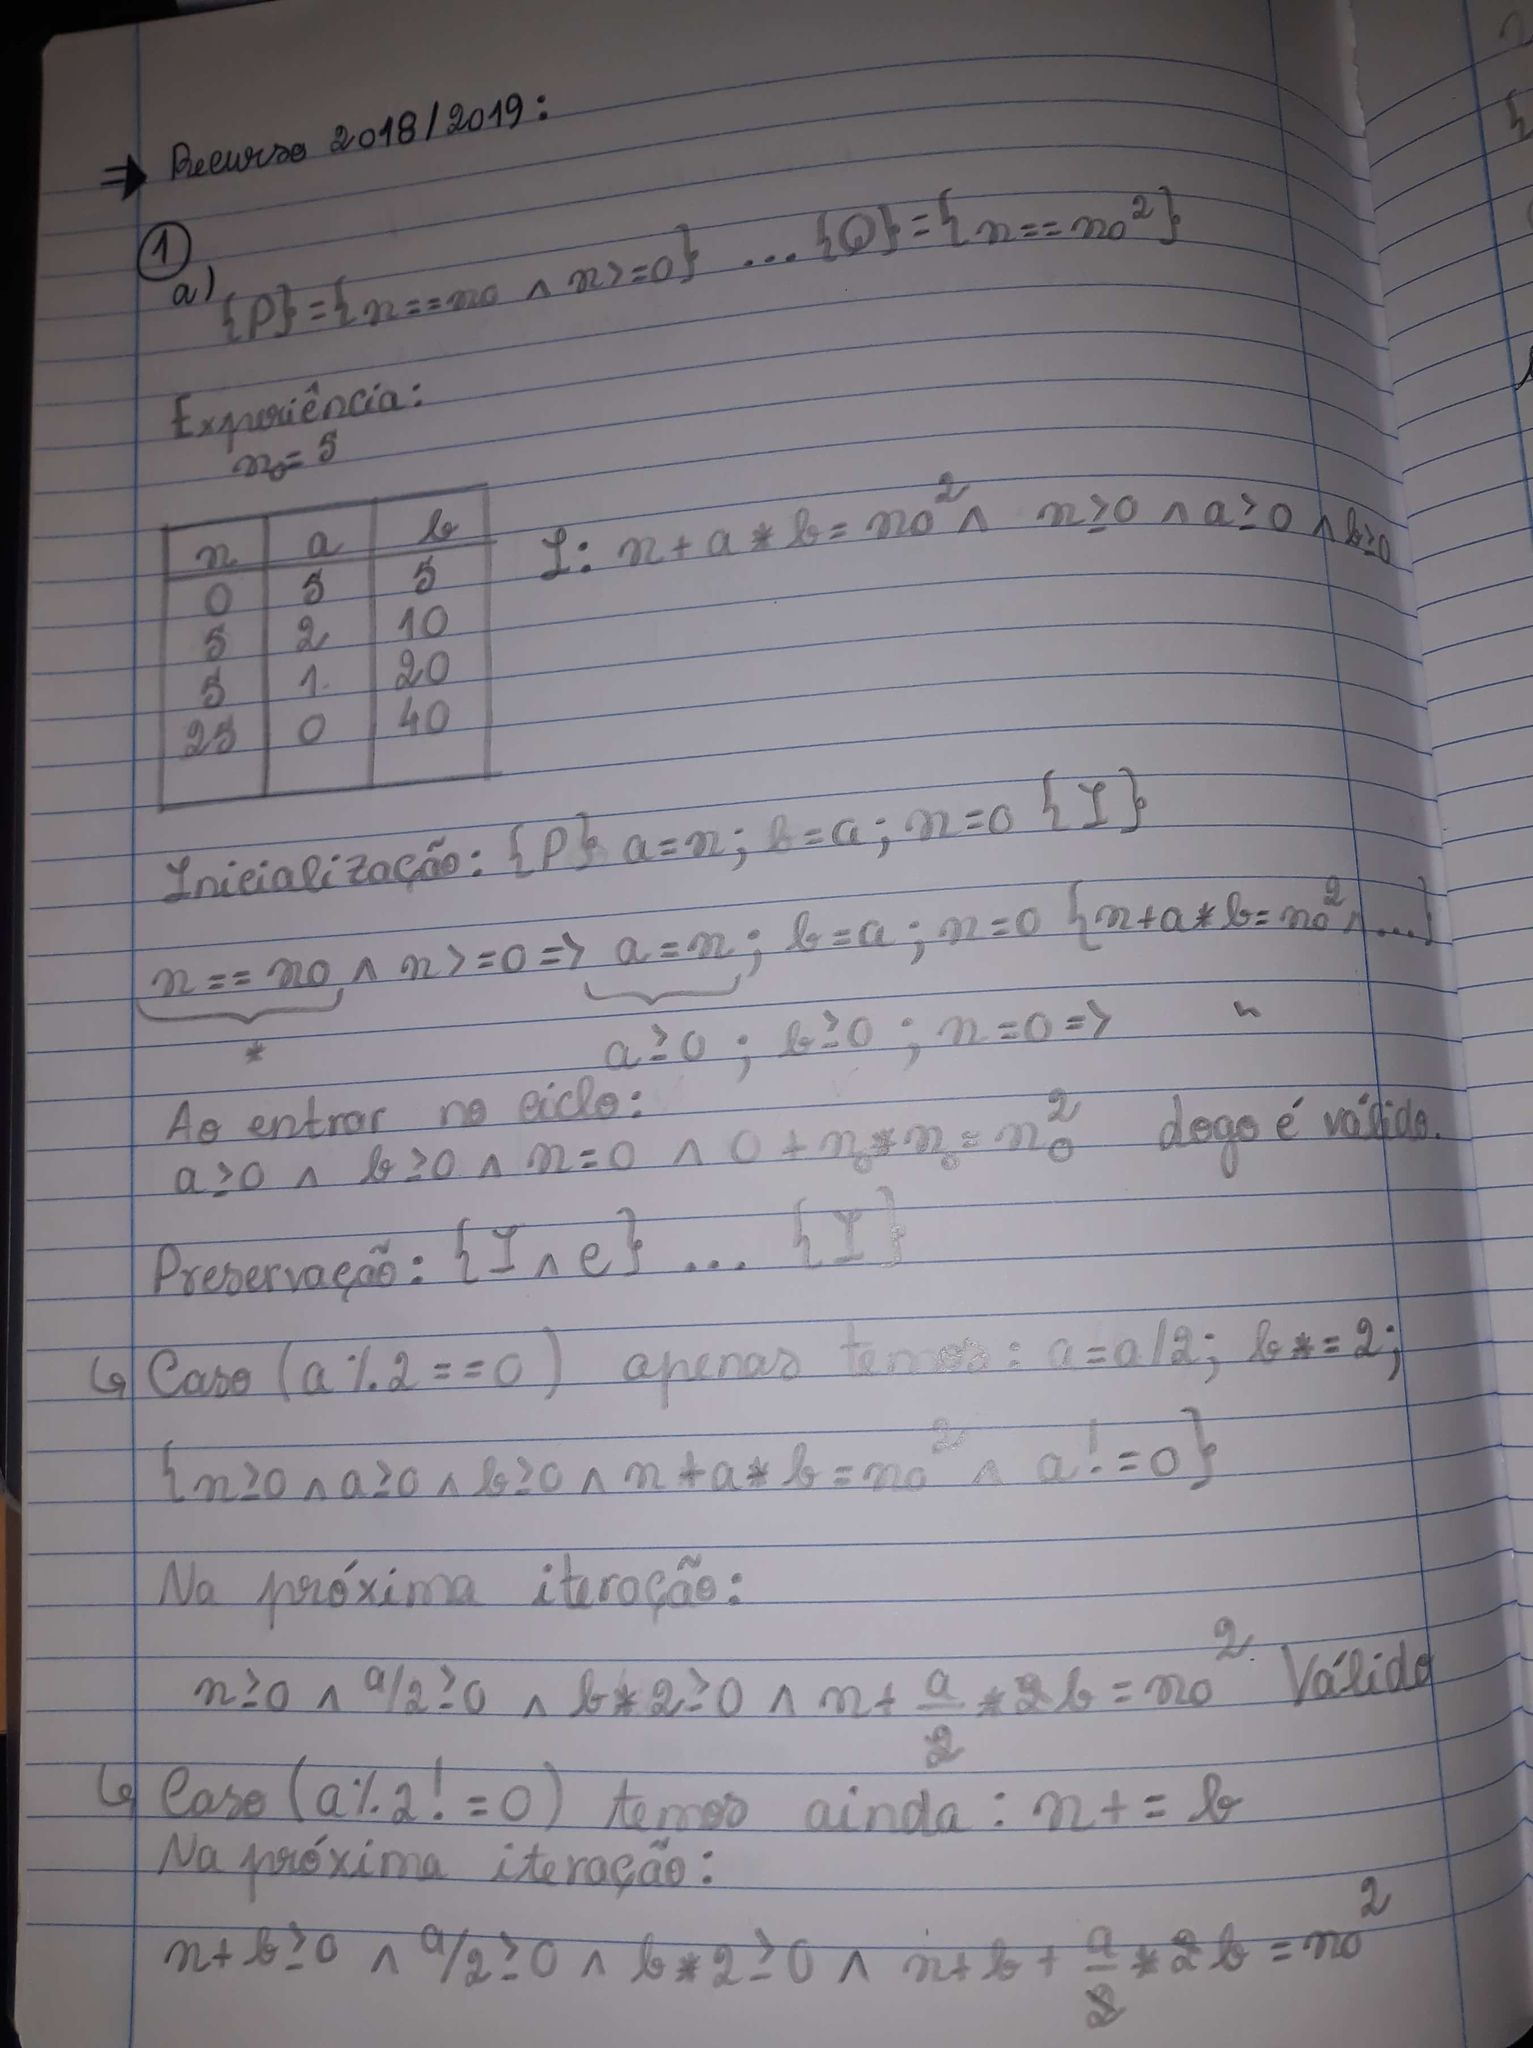 ⇒ Recurso 2018/2019:
①
a) {P}={n==n0 ∧ n>=0} ... {Q}={n==n0²}
Experiência:
n0=5
n a b
0 5 5
5 2 10
5 1 20
25 0 40
I: n+a*b=n0² ∧ n≥0 ∧ a≥0 ∧ b≥0
Inicialização: {P} a=n; b=a; n=0 {I}
n==n0 ∧ n>=0 => a=n; b=a; n=0 {n+a*b=n0² ∧ ...}
* a≥0; b≥0; n=0 => "
Ao entrar no ciclo:
a≥0 ∧ b≥0 ∧ n=0 ∧ 0+n₀*n₀=n₀² logo é válido.
Preservação: {I ∧ c} ... {I}
↳ Caso (a%2==0) apenas temos: a=a/2; b*=2;
{n≥0 ∧ a≥0 ∧ b≥0 ∧ n+a*b=n0² ∧ a!=0}
Na próxima iteração:
n≥0 ∧ a/2≥0 ∧ b*2≥0 ∧ n+a/2*2b=n0² Válido
↳ Caso (a%2!=0) temos ainda: n+=b
Na próxima iteração:
n+b≥0 ∧ a/2≥0 ∧ b*2≥0 ∧ n+b+a/2*2b=n0²